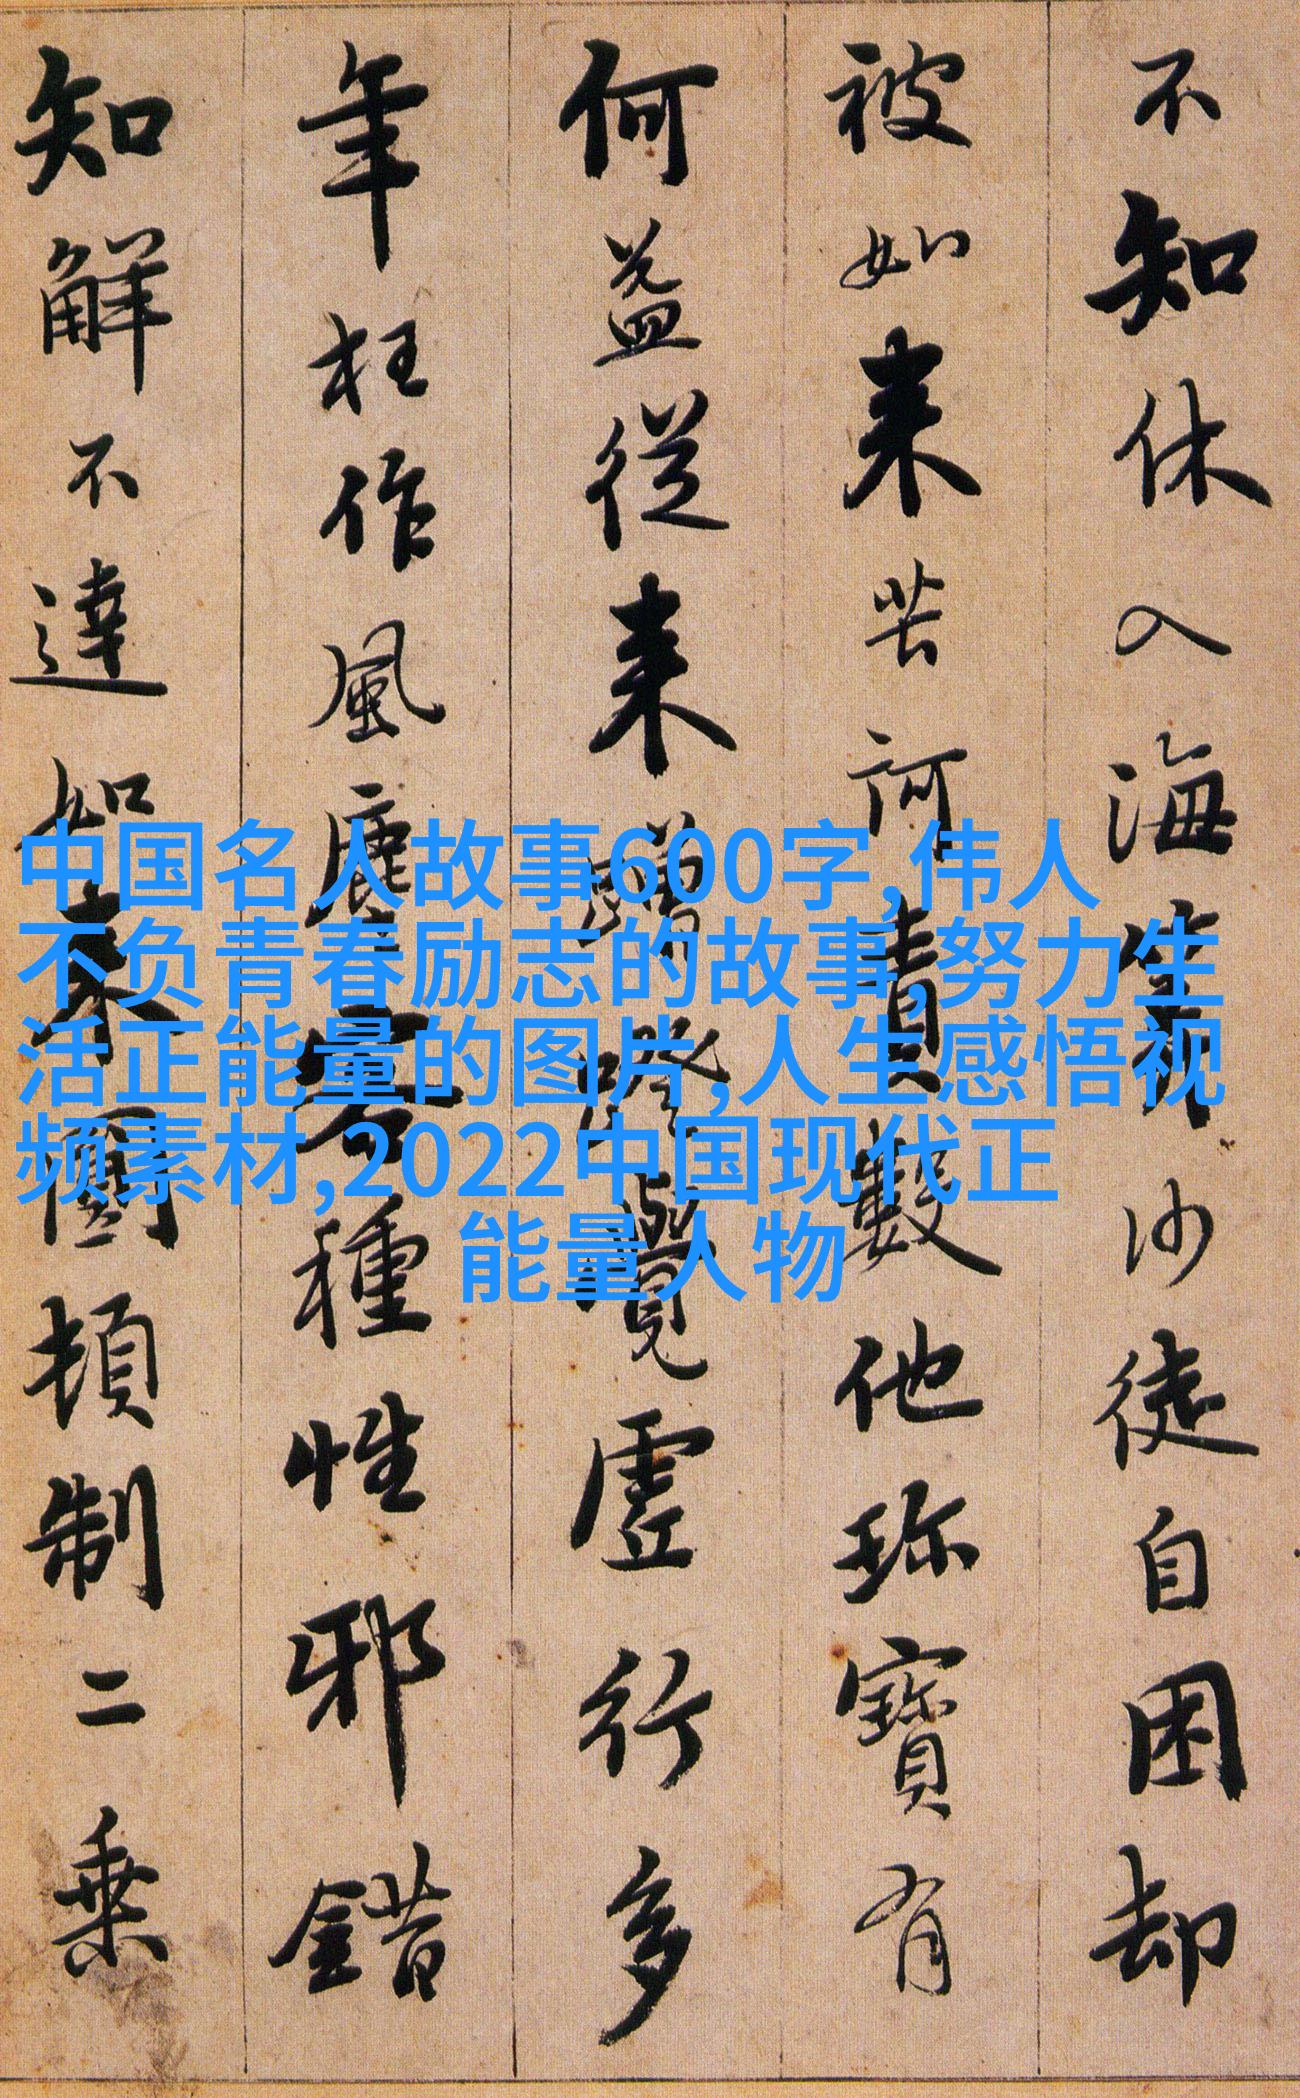 不知休入海筭沙徒自困却
被如来苦訶責數他珎寶有
何益從来蹭蹬覺虛行多
年枉作風塵客種性邪錯
知解不達如来圓頓制二乗
中国名人故事600字,伟人
不负青春励志的故事,努力生
活正能量的图片,人生感悟视
频素材,2022中国现代正
能量人物